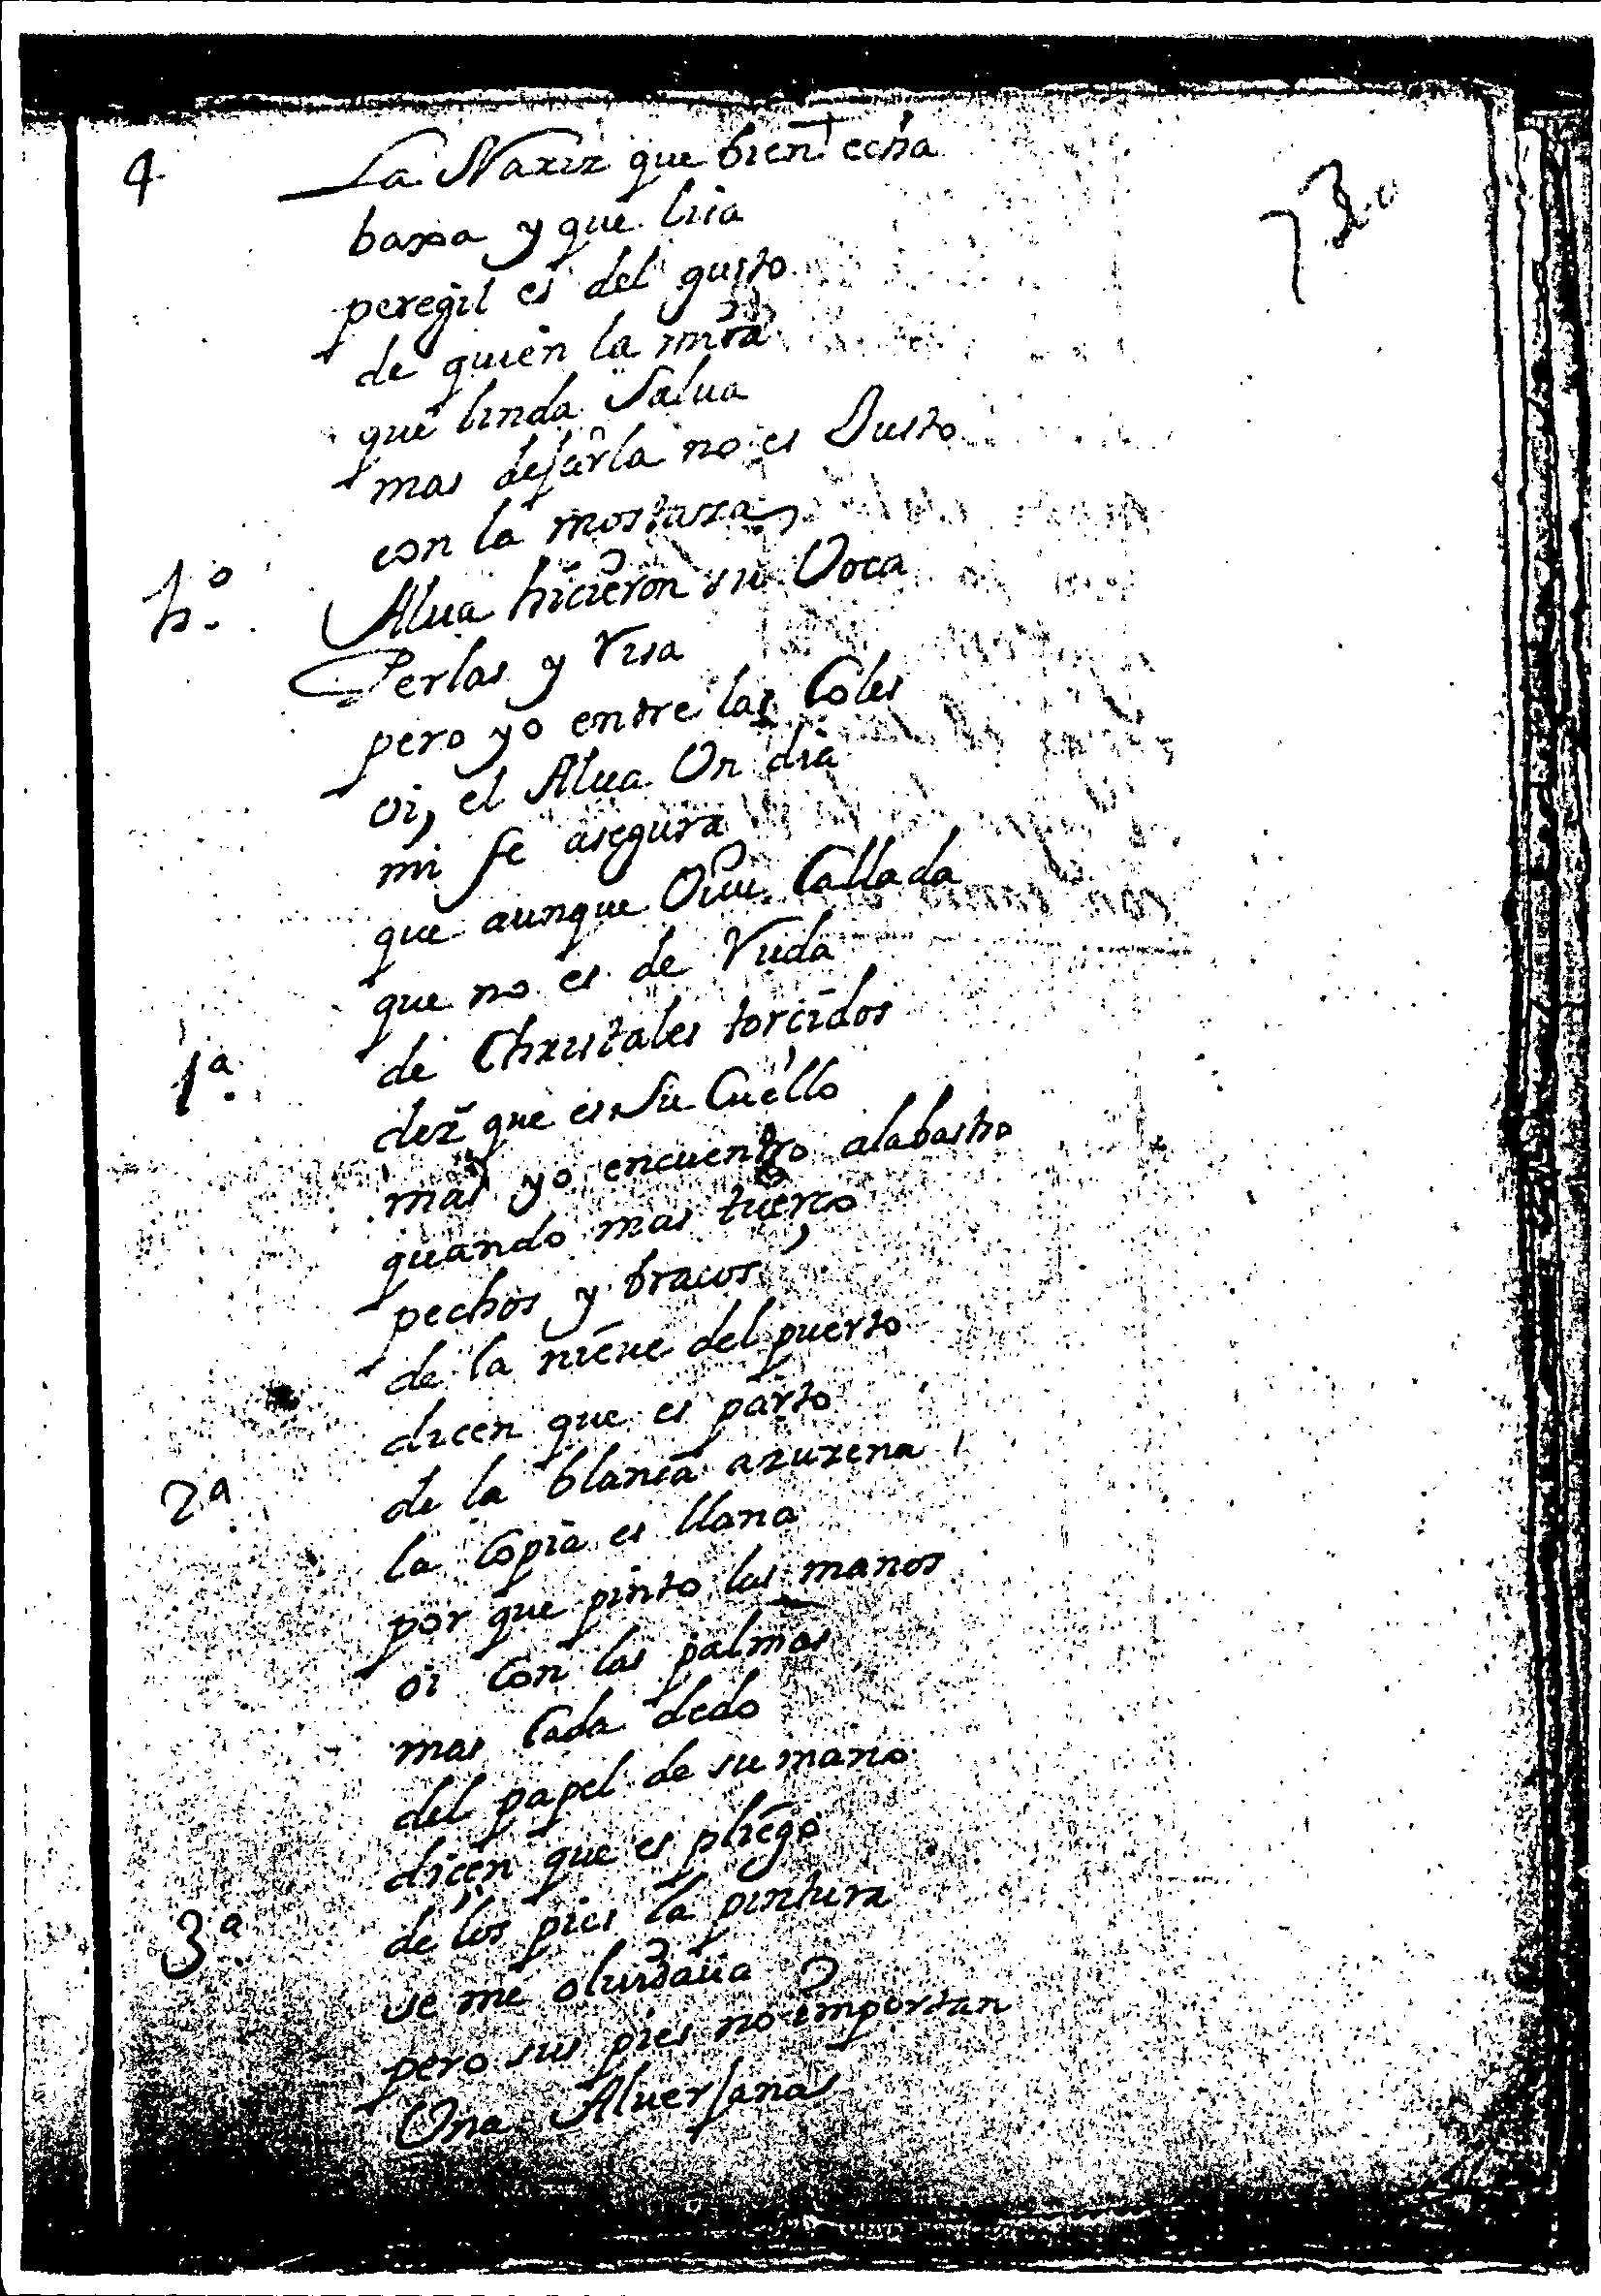 4 La Nariz que bien echa
73
baxa y que lisa
peregil es del gusto
de quien la mira
que linda Salua
mas dejarla no es Justo
con la mostaza
hº. Alua hicieron su Voca
Perlas y Risa
pero yo entre las Coles
oi, el Alua Vn dia
mi fe asegura
que aunque Viue Callada
que no es de Ruda
1ª. de Christales torcidos
dez que es Su Cuello
mas yo encuentro alabastro
quando mas tuerço
pechos y braços
de la nieue del puerto
dicen que es parto
2ª de la blanca azuzena
la Copia es llana
por que pinto las manos
oi Con las palmas
mas Cada dedo
del papel de su mano
dicen que es pliego
3ª. de los pies la pintura
se me oluidaua
pero sus pies no importan
Vna Aluerjana